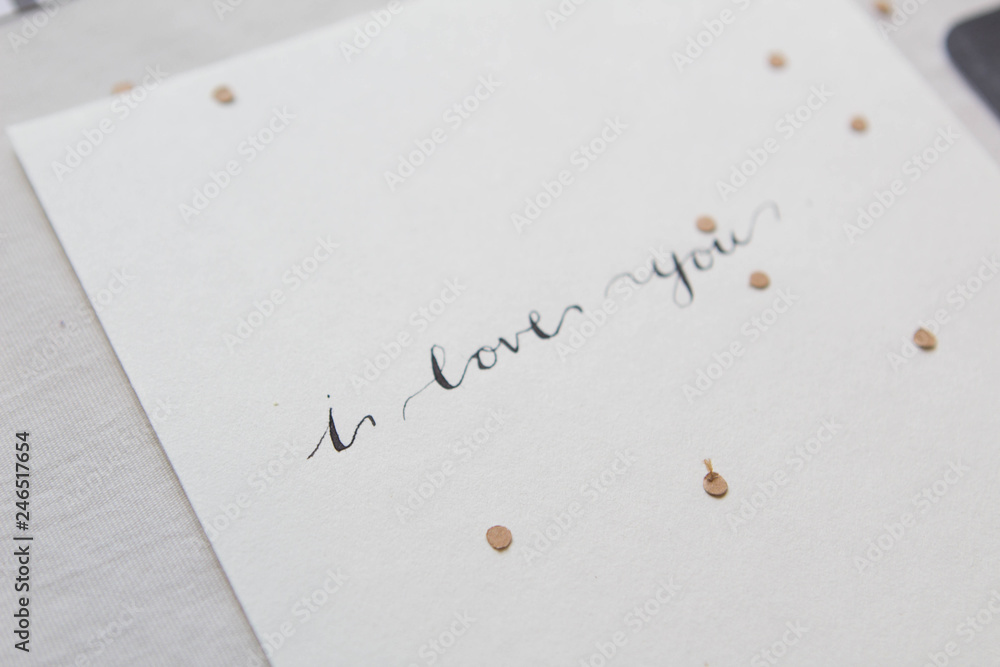 i love you
Adobe Stock | #246517654